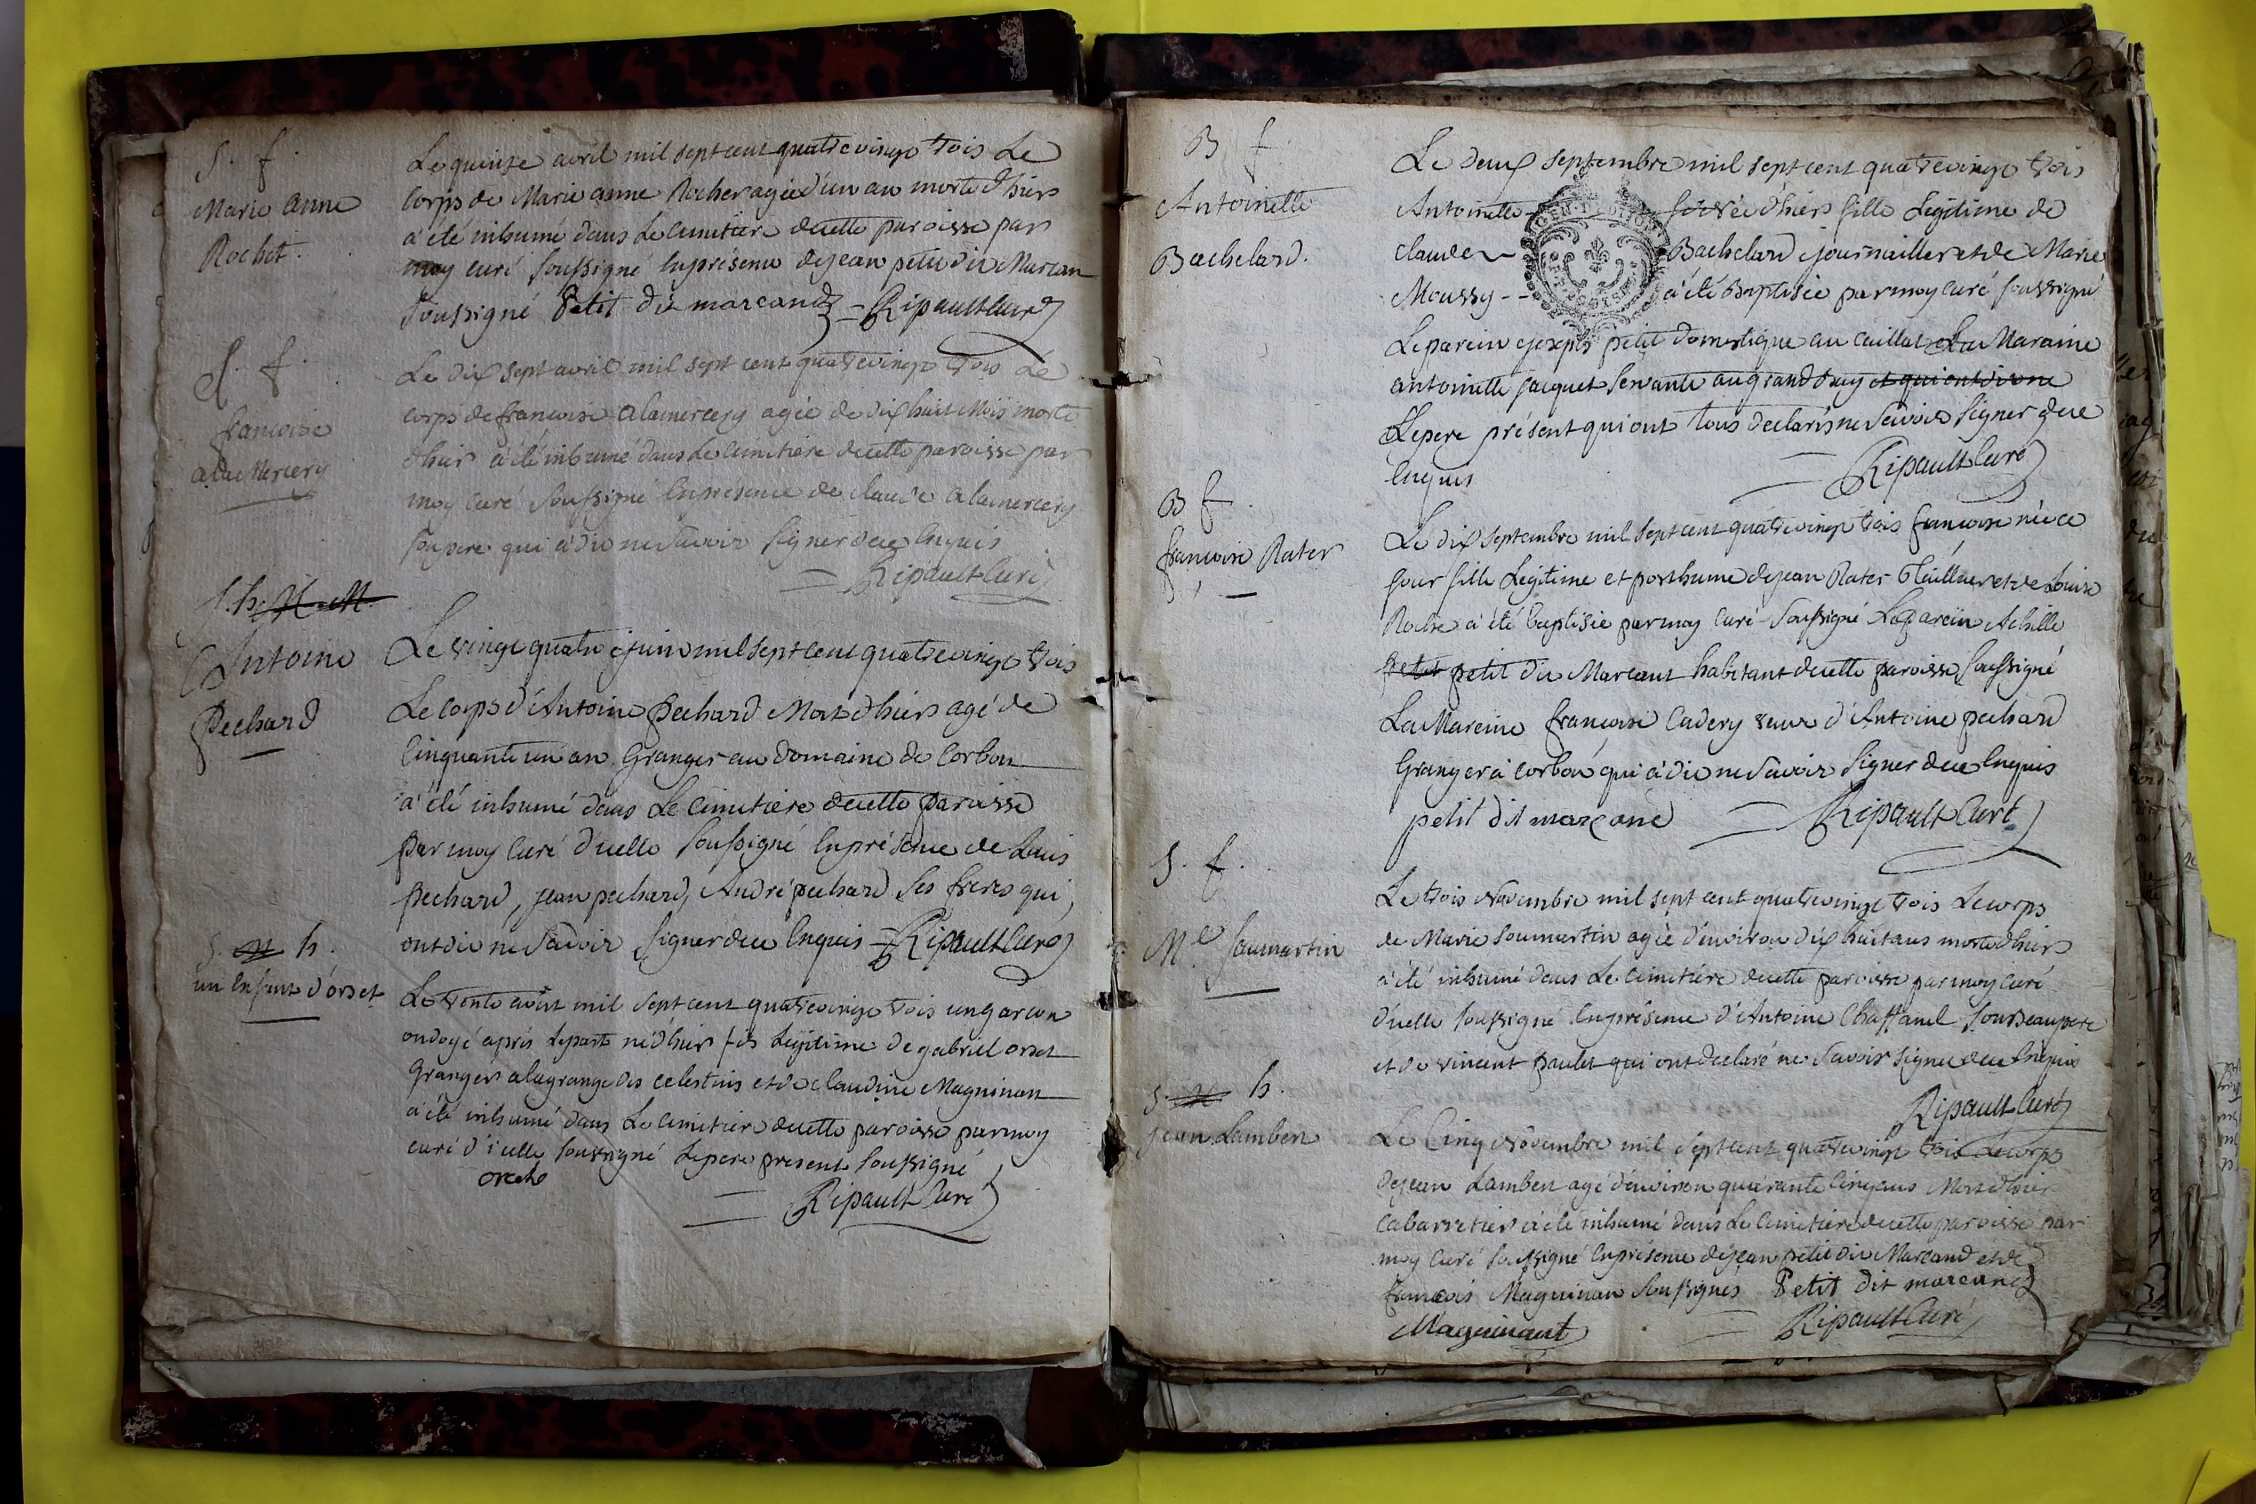 S. f.
Marie anne
Rochet.
Le quinze avril mil sept cent quatrevingt trois Le
corps de Marie anne Rocher agée d'un an morte d'hier
a été inhumé dans Le Cimitiere de cette paroisse par
moy curé soussigné en présence de jean petit dit Marcan
soussigné Petit dit marcand Ripault Curé
S. f.
francoise
alaMercery
Le dix sept avril mil sept cent quatrevingt trois Le
corps de francoise alamercery agée de dix huit Mois morte
d'hier a été inhumé dans Le Cimitiere de cette paroisse par
moy curé soussigné en presence de claude alamercery
son pere qui a dit ne savoir signer de ce enquis
Ripault Curé
S. h.
Antoine
Pechard
Le vingt quatre juin mil sept cent quatrevingt trois
Le corps d'Antoine pechard Mort d'hier agé de
Cinquante un an Granger au domaine de Corbon
a été inhumé dans Le Cimitiere de cette paroisse
par moy Curé d'icelle soussigné en présence de Louis
pechard, jean pechard, André pechard ses freres qui
ont dit ne savoir signer de ce enquis Ripault Curé
S. h.
un enfant d'orset
Le trente aout mil sept cent quatrevingt trois un garcon
ondoyé aprés Le part né d'hier fils Legitime de gabriel orset
Granger a la grange des celestins et de claudine Magninan
a été inhumé dans Le Cimitiere de cette paroisse par moy
curé d'icelle soussigné Le pere present soussigné
Ripault Curé
B f.
Antoinette
Bachelard.
Le deux septembre mil sept cent quatrevingt trois
Antoinette née d'hier fille Legitime de
claude Bachelard journaillier et de Marie
Moussy a été Baptisée par moy curé soussigné
Le parein joseph petit domestique au caillat La Maraine
antoinette jacquet servante au grand et qui ont
Le pere présent qui ont tous declarés ne savoir signer de ce
enquis Ripault Curé
B f.
francoise Rater
Le dix septembre mil sept cent quatrevingt trois francoise née ce
jour fille Legitime et posthume de jean Rater Tailleur et de Louise
Roche a été baptisée par moy curé soussigné Le parein Achille
petit petit dit Marcant habitant de cette paroisse soussigné
La Mareine francoise Cadery veuve d'Antoine pechard
Granger a corbon qui a dit ne savoir signer de ce enquis
petit dit marcand Ripault Curé
S. f.
Me Soumartin
Le trois Novembre mil sept cent quatrevingt trois Le corps
de Marie soumartin agée d'environ dix huit ans morte d'hier
a été inhumé dans Le cimitiere de cette paroisse par moy curé
d'icelle soussigné en présence d'Antoine Chaffanel son beaupere
et de vincent paulet qui ont declaré ne savoir signer de ce enquis
Ripault Curé
S. h.
jean Lambert
Le Cinq Novembre mil sept cent quatrevingt trois Le corps
de jean Lambert agé d'environ quarante cinq ans Mort d'hier
Cabarretier a été inhumé dans Le Cimitiere de cette paroisse par
moy curé soussigné en présence de jean petit dit Marcand et de
francois Magninan soussignés Petit dit marcand
Magninant Ripault Curé